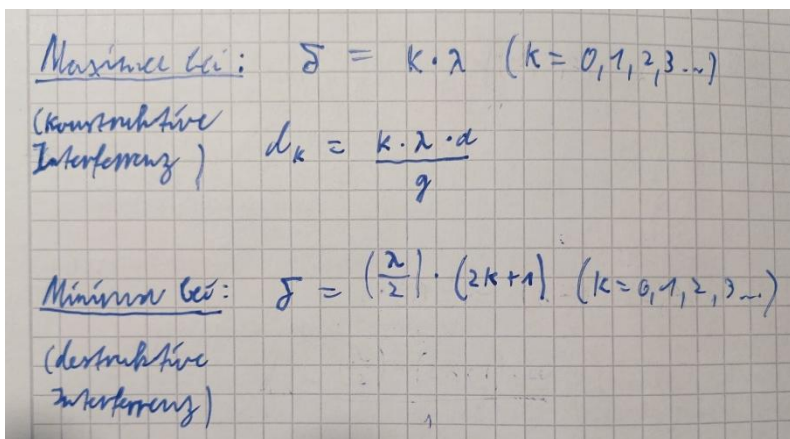 Maxima bei: δ = k·λ (k = 0,1,2,3...)
(konstruktive
Interferrenz)
d_k = k·λ·d / g
Minima bei: δ = (λ/2)·(2k+1) (k=0,1,2,3...)
(destruktive
Interferrenz)